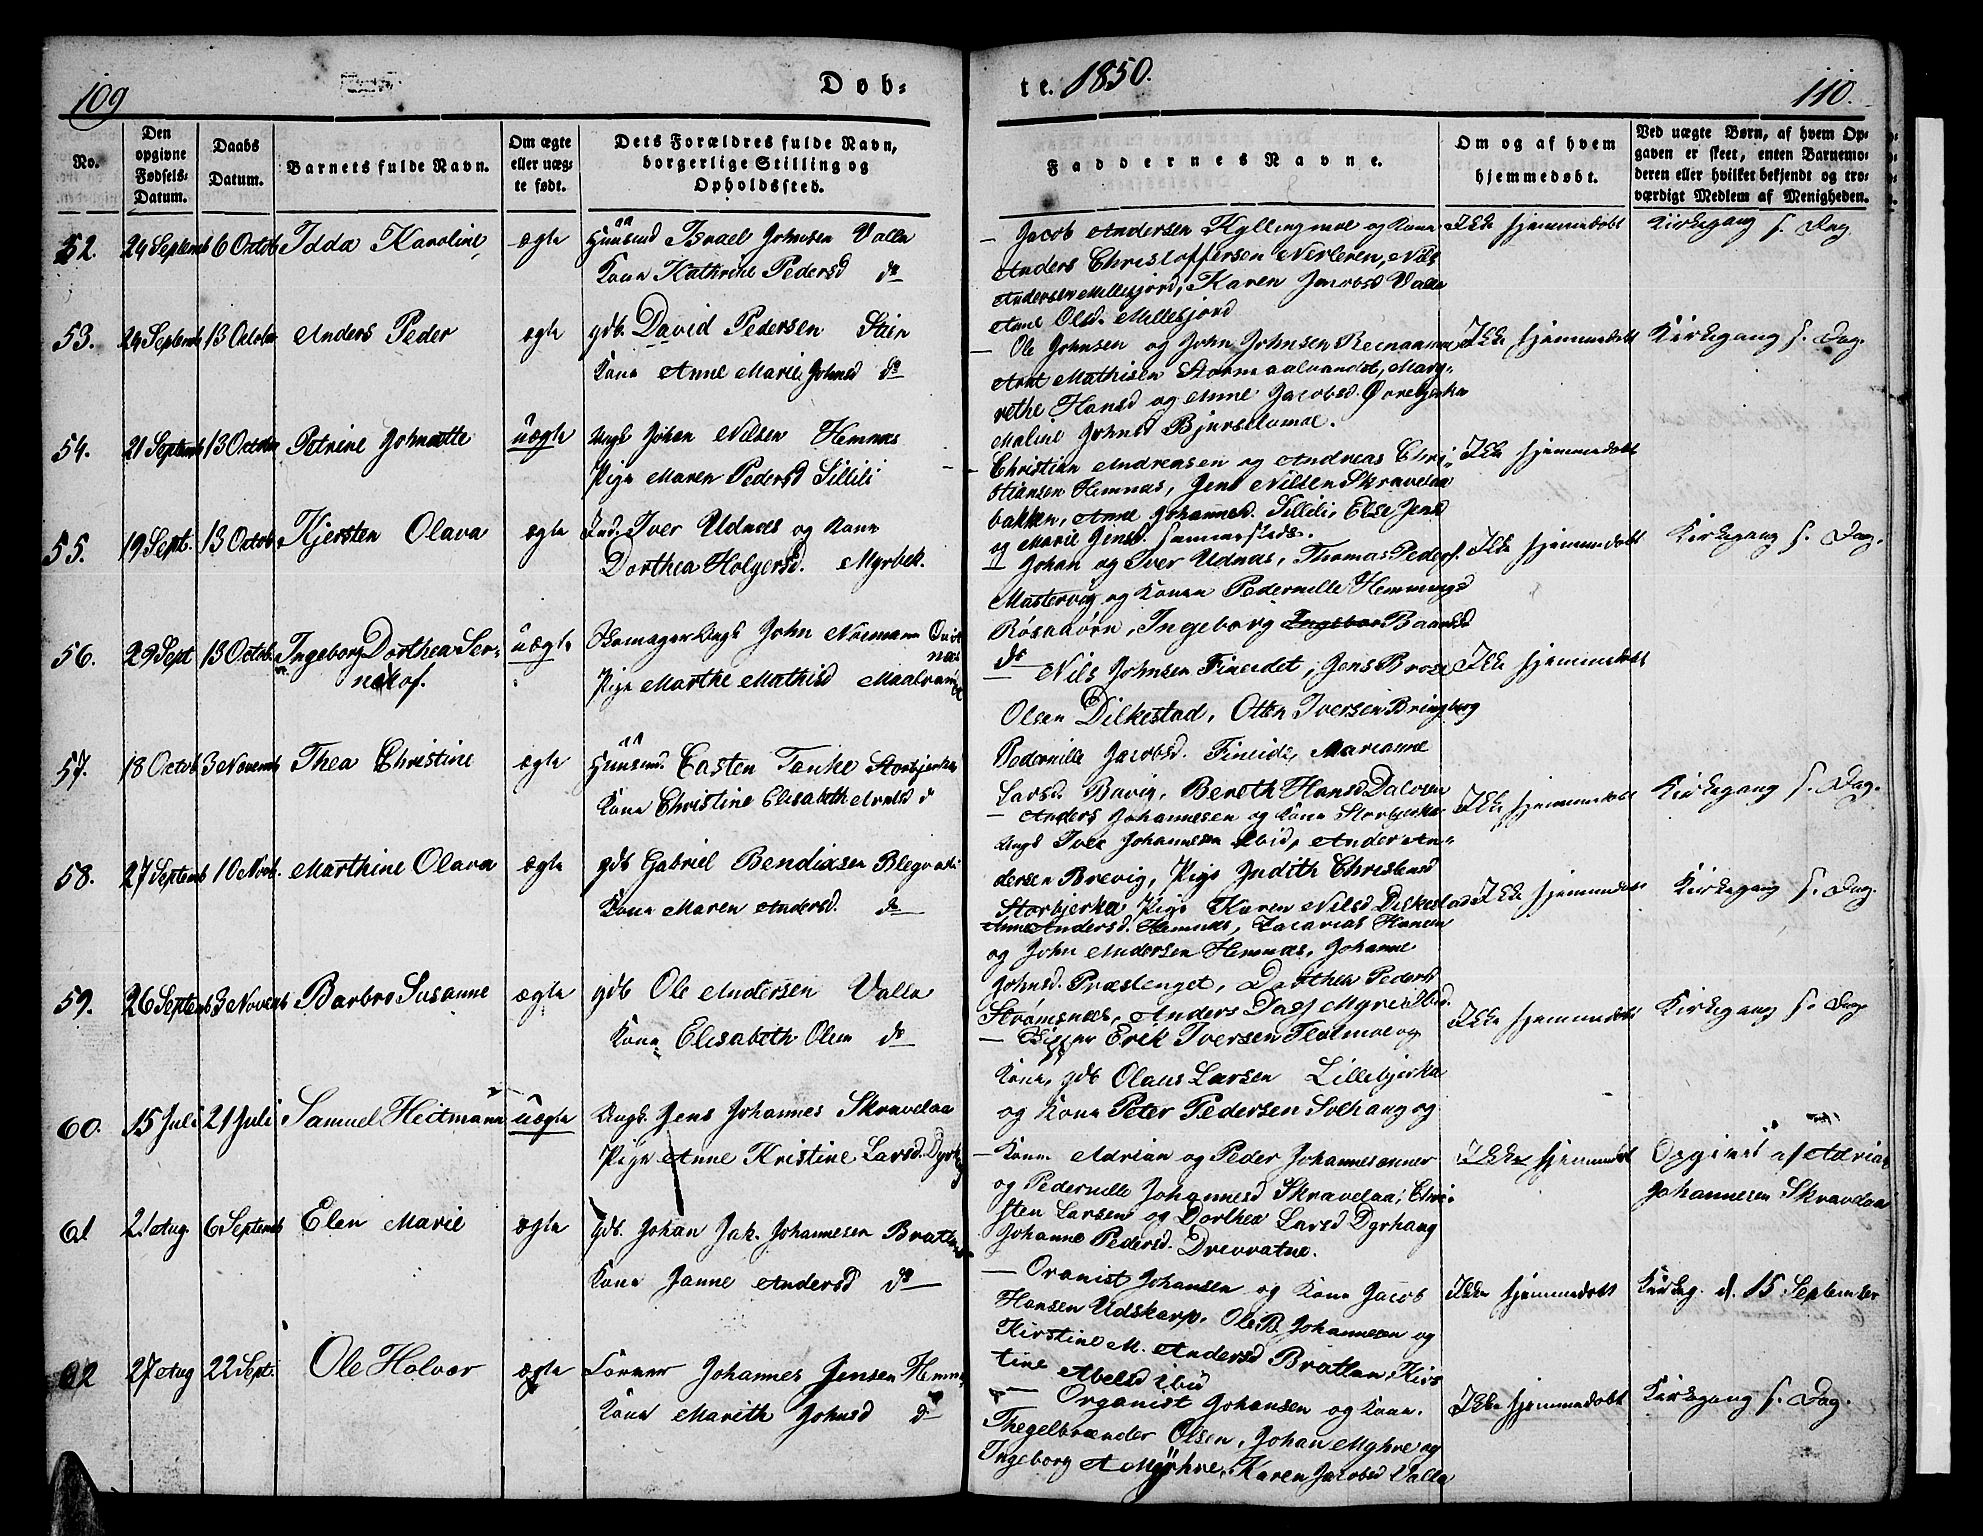 109
Døb-
te. 1850.
110.
No.
Den opgivne Fødsels-Datum.
Daabs Datum.
Barnets fulde Navn.
Om ægte eller uæg-te født.
Dets Forældres fulde Navn, borgerlige Stilling og Opholdssted.
Faddernes Navne.
Om og af hvem hjemmedøbt.
Ved uægte Børn, af hvem Op-gaven er skeet, enten Barnemo-deren eller hvilket bekjendt og tro-værdigt Medlem af Menigheden.
52. 24 Septemb 6 Octob Idda Karoline ægte Huusmd Israel Johnsen Valla
Kone Kathrine Pedersd do
Jacob Andersen Kyllingmoe og Kone
Anders Christoffersen Nerleren, Nils
Andersen Millesjord, Karen Jacobsd Valla
Anne Olsd. Millesjord
Ikke hjemmedøbt Kirkegang s. Dag
53. 24 Septemb 13 October Anders Peder ægte gdb. David Pedersen Stien
Kone Anne Marie Johnsd do
Ole Johnsen og John Johnsen
Arnt Mathisen Stormaalvandet, Marg-
rethe Hansd og Anne Jacobsd. Øvrebjerka
Maline Johnsd
Ikke hjemmedøbt Kirkegang s. Dag.
54. 21 Septemb 13 October Petrine Johnette uægte Ungk Johan Nilsen Hemnæs
Pige Maren Pedersd Lillili
Christian Andreasen og Andreas Chri-
stiansen Hemnæs, Jens Nilsen Skravelaa
bakken, Anne Johannesd. Lillili, Else Jensd
og Marie Jensd. sammesteds.
Ikke hjemmedøbt
55. 19 Sept. 13 Octob. Kjersten Olava ægte Ind. Iver Udnæs og Kone
Dorthea Holgersd. Myrbek.
Johan og Iver Udnæs, Thomas Peders.
Mastervig og Konen Pedernille Hemmingsd
Røsaaøren, Ingeborg Ingebor Baarsd
do
Ikke hjemmedøbt Kirkegang s. Dag.
56. 29 Sept 13 Octob. Ingeborg Dorthea Ser-
nikof. uægte Skomager Ungk John Noemann Qvit
næs
Pige Marthe Mathisd Maalvand
Nils Johnsen Fineidet, Jens Brose
Olsen Dilkestad, Otten Iversen Bringberg
Pedernille Jacobsd. Fineide, Marianne
Larsd. Bavig, Bereth Hansd. Dalosen
Ikke hjemmedøbt
57. 18 Octob 3 Novemb Thea Christine ægte Huusmd. Easten Tanke Storbjerka
Kone Christine Elisabeth Arntsd do
Anders Johannesen og Kone Storbjerka
Ungk Iver Johannesen Lvid, Ander An-
dersen Brevig, Pige Judith Christensd
Storbjerka Pige Karen Nilsd Dilkestad
Ikke hjemmedøbt Kirkegang s. Dag.
58. 27 Septemb 10 Novb. Marthine Olava ægte gdb Gabriel Bendixsen
Kone Maren Andersd. do
Anne Andersd. Hemnæs, Zacarias Hansen
og John Andersen Hemnæs, Johanne
Johnsd. Præstenget, Dorthea Pedersd
Strømsnæs, Anders Dass
Ikke hjemmedøbt Kirkegang s. Dag.
59. 26 Septemb 3 Novemb Barbro Susanne ægte gdb Ole Andersen Valla
Kone Elisabeth Olsen do
Erik Iversen Fleatmoe og
Kone, gdb Olaus Larsen Lillebjerka
og Kone Peter Pedersen Solhaug og
Kone
Ikke hjemmedøbt Kirkegang s. Dag
60. 15 Juli 21 Juli Samuel Heitmann uægte Ungk. Jens Johannes Skravelaa
Pige Anne Kristine Larsd. Dyrhaug
Adrian og Peder Johannesenner
og Pedernille Johannesd Skravelaa, Chri-
sten Larsen og Dorthea Larsd Dyrhaug
Johanne Pedersd. Drevvatne.
Ikke hjemmedøbt Opgivet af Adrian
Johannesen Skravelaa
61 2 Aug 6 Septemb Elen Marie ægte gdb. Johan Jak. Johannesen Bratland
Kone Janne Andersd do
Oranist Johansen og Kone Jacob
Hansen Udskarp, Ole B. Johannesen og
Kirstine M. Andersd Bratlan, Kirs
tine Abelsd ibid
Ikke hjemmedøbt Kirkeg. d. 15 September
62 27 Aug 22 Sept. Ole Holvar ægte Johannes Jensen Hemn
Kone Marith Johnsd do
Organist Johansen og Kone.
Thegelbrænder Olsen, Johan Myhre og
Ingeborg A Myhre, Karen Jacobsd Valla
Ikke hjemmedøbt Kirkegang s. Dag.